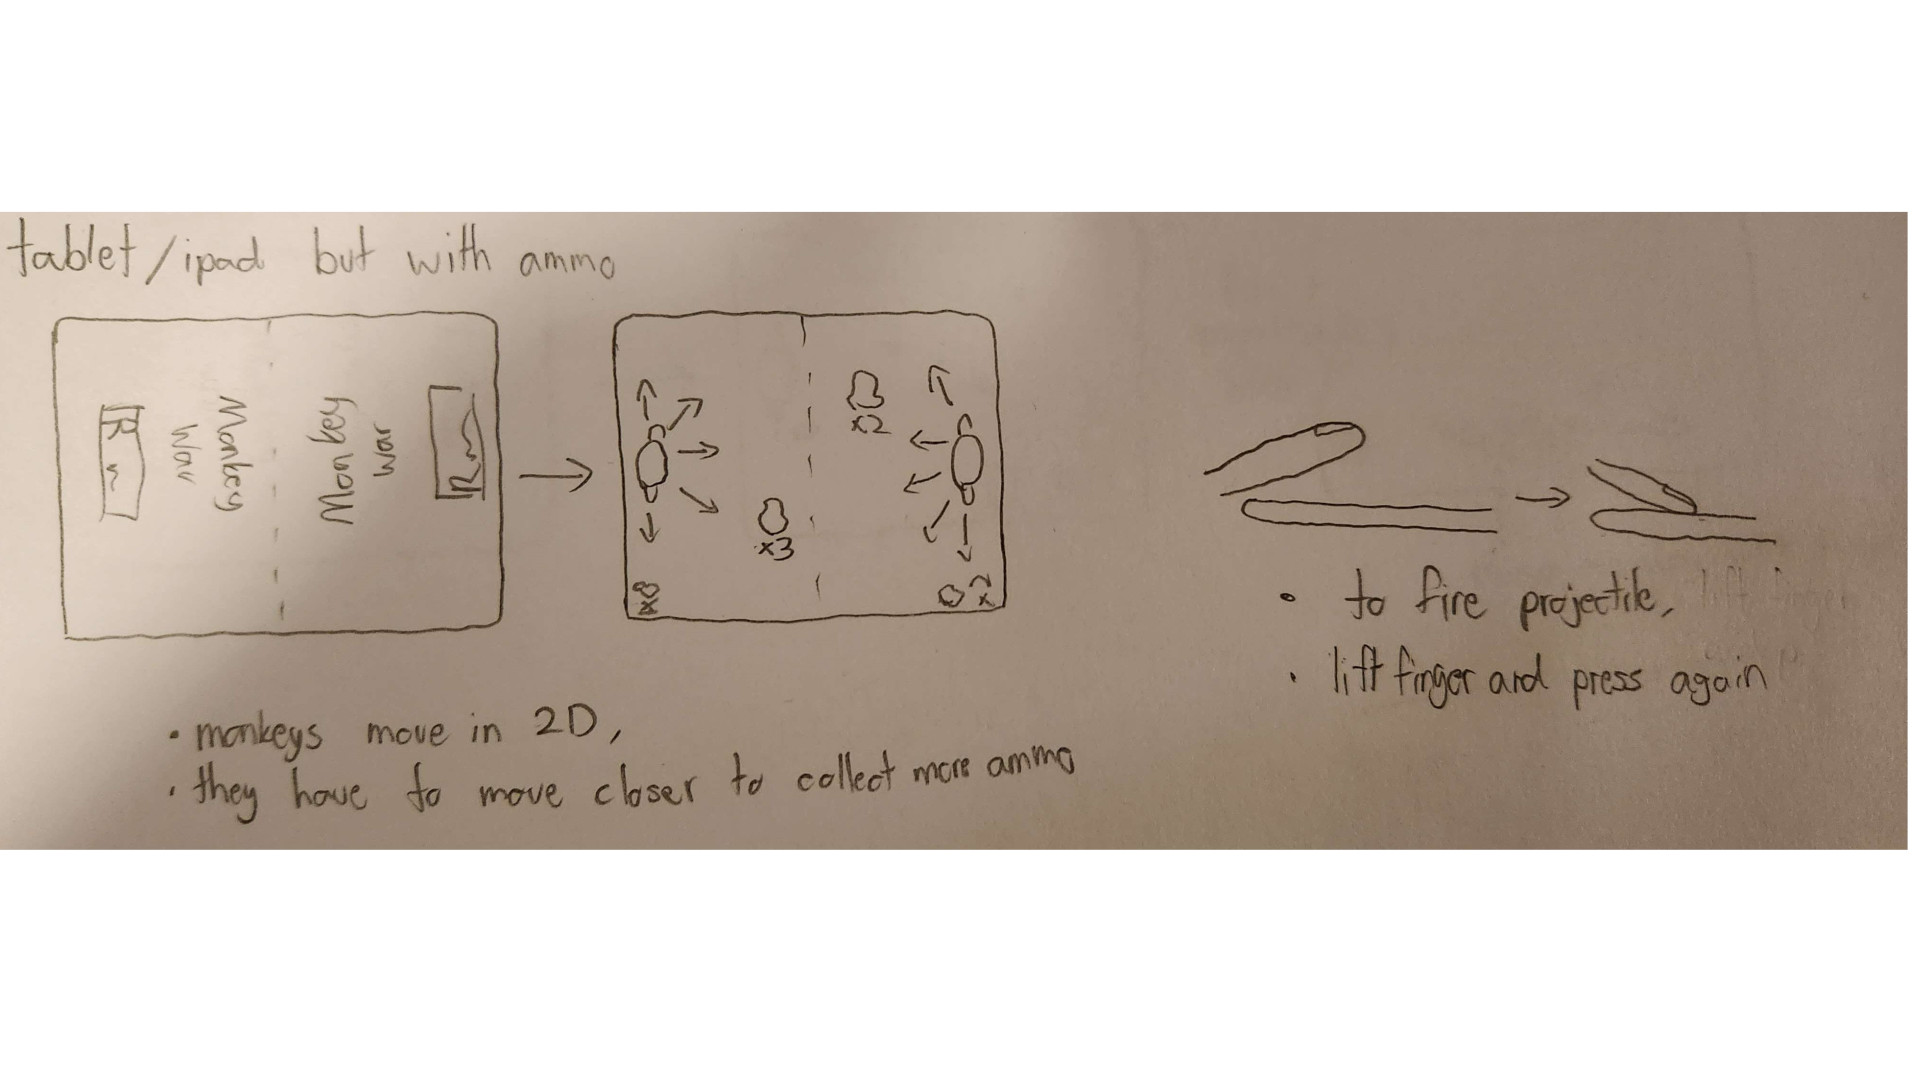 tablet/ipad but with ammo
Monkey
War
Monkey
War
x2
x3
x2
• monkeys move in 2D,
• they have to move closer to collect more ammo
• to fire projectile, lift finger
• lift finger and press again